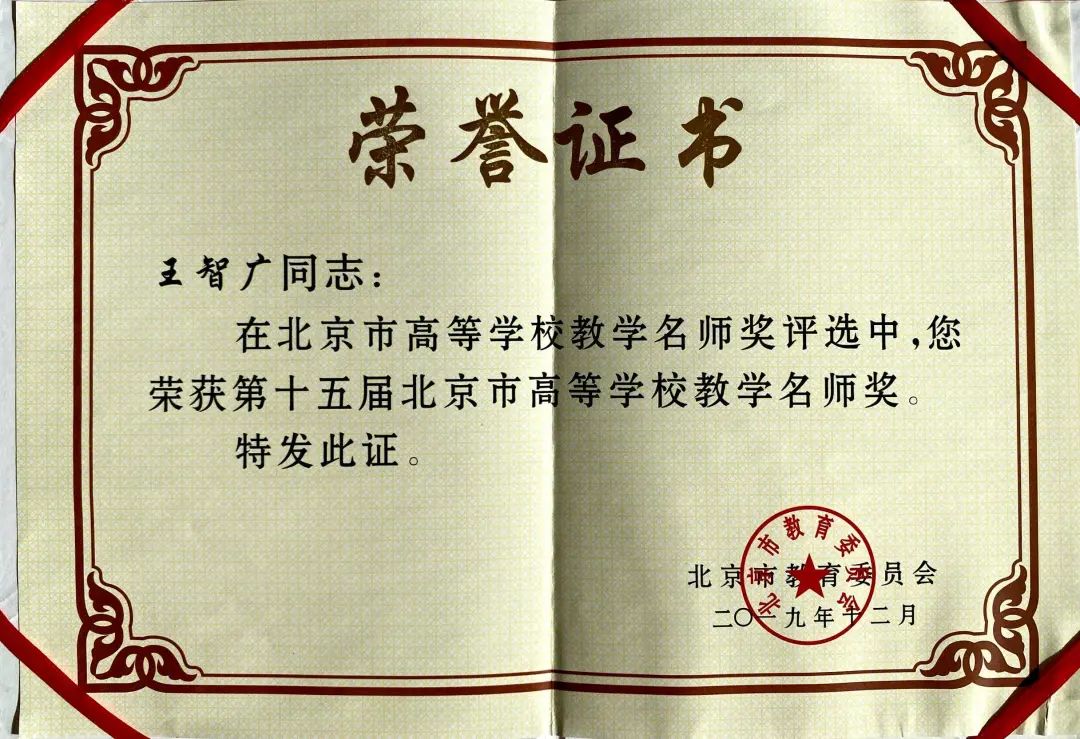 荣誉证书
王智广同志：
在北京市高等学校教学名师奖评选中，您
荣获第十五届北京市高等学校教学名师奖。
特发此证。
北京市教育委员会
北京市教育委员会
二〇一九年十二月